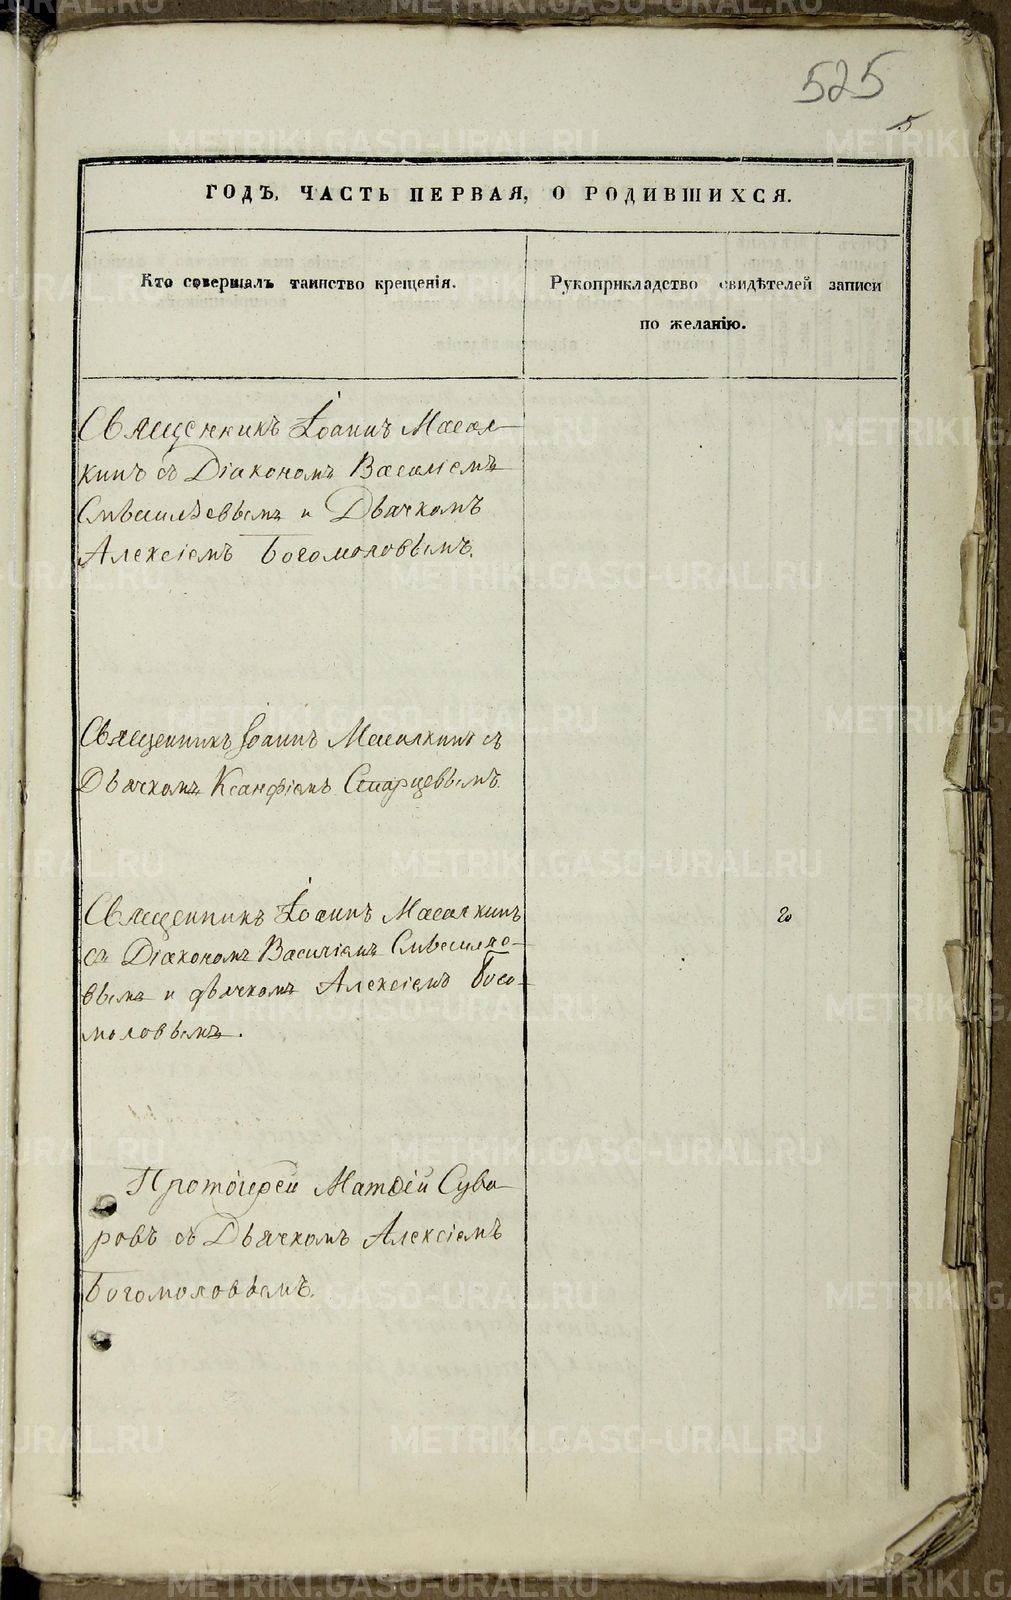 525
5
ГОДЪ, ЧАСТЬ ПЕРВАЯ, О РОДИВШИХСЯ.
Кто совершалъ таинство крещенія.
Рукоприкладство свидѣтелей записи
по желанію.
Священникъ Іоаннъ Масал-
кинъ съ Діакономъ Василіемъ
и Дьячкомъ
Алексіемъ Богомоловымъ.
Священникъ Іоаннъ Масалкинъ съ
Дьячкомъ Ксанфіемъ Старцевымъ.
Священникъ Іоаннъ Масалкинъ
съ Діакономъ Василіемъ
вымъ и дьячкомъ Алексіемъ Бого-
моловымъ.
Протоіерей Матѳій Суво-
ровъ съ Дьячкомъ Алексіемъ
Богомоловымъ.
METRIKI.GASO-URAL.RU